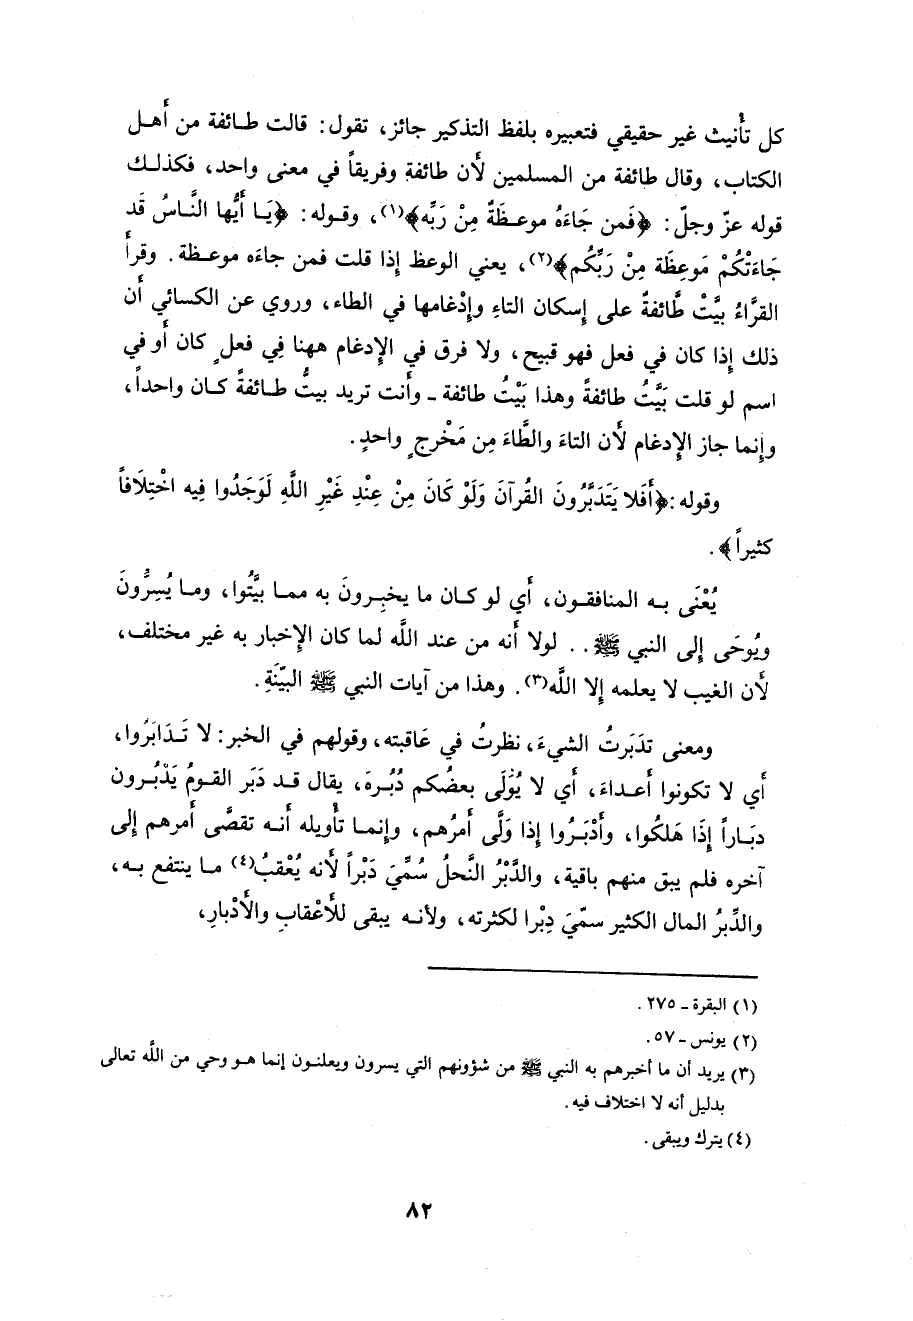 كل تأْنيث غير حقيقي فتعبيره بلفظ التذكير جائز، تقول: قالت طائفة من أَهل
الكتاب، وقال طائفة من المسلمين لأَن طائفة وفريقاً في معنى واحد، فكذلك
قوله عزّ وجلّ: ﴿فَمن جَاءَهُ موعظَةٌ مِنْ رَبِّه﴾(١)، وقوله: ﴿يَا أَيُّها النَّاسُ قَد
جَاءَتْكُمْ مَوعِظَة مِنْ رَبِّكُم﴾(٢)، يعني الوعظ إذا قلت فمن جاءَه موعظة. وقرأَ
القرَّاءُ بيَّتْ طَّائفةٌ على إِسكان التاءِ وإِدْغامها في الطاء، وروي عن الكسائي أَن
ذلك إِذا كان في فعل فهو قبيح، ولا فرق في الإِدغام ههنا فِي فعلٍ كان أَو في
اسم لو قلت بَيَّتُ طائفةً وهذا بَيْتُ طائفة ـ وأَنت تريد بيتُّ طائفةً كان واحداً،
وإِنما جاز الإِدغام لأَن التاءَ والطَّاءَ مِن مَخْرجٍ واحدٍ.
وقوله:﴿أَفَلا يَتَدَبَّرُونَ القُرآنَ وَلَوْ كَانَ مِنْ عِنْدِ غَيْرِ اللَّهِ لَوَجَدُوا فِيه اخْتِلَافاً
كثيراً﴾.
يُعْنَى به المنافقون، أَي لو كان ما يخبِرونَ به مما بيَّتُوا، وما يُسِرُّونَ
ويُوحَى إِلى النبي ﷺ.. لولا أَنه من عند اللَّه لما كان الإِخبار به غير مختلف،
لأَن الغيب لا يعلمه إِلا اللَّه(٣). وهذا من آيات النبي ﷺ البيّنَةِ.
ومعنى تدَبَرتُ الشيءَ، نظرتُ في عَاقبته، وقولهم في الخبر: لا تَدَابَرُوا،
أَي لا تكونوا أَعداءَ، أَي لا يُوَلَّى بعضُكم دُبُرهَ، يقال قد دَبَر القومُ يَدْبُرون
دبَاراً إِذَا هَلكُوا، وأَدْبَرُوا إذا وَلَّى أَمرُهم، وإنما تأْويله أَنه تقضَّى أَمرهم إِلى
آخره فلم يبق منهم باقية، والدَّبْرُ النَّحلُ سُمِّيَ دَبْراً لأَنه يُعْقبُ(٤) ما ينتفع به،
والدِّبرُ المال الكثير سمّيَ دِبْرا لكثرته، ولأنه يبقى للأَعْقابِ والأَدْبارِ،
(١) البقرة ـ ٢٧٥.
(٢) يونس ـ ٥٧.
(٣) يريد أن ما أخبرهم به النبي ﷺ من شؤونهم التي يسرون ويعلنون إنما هو وحي من اللَّه تعالى
بدليل أنه لا اختلاف فيه.
(٤) يترك ويبقى.
٨٢